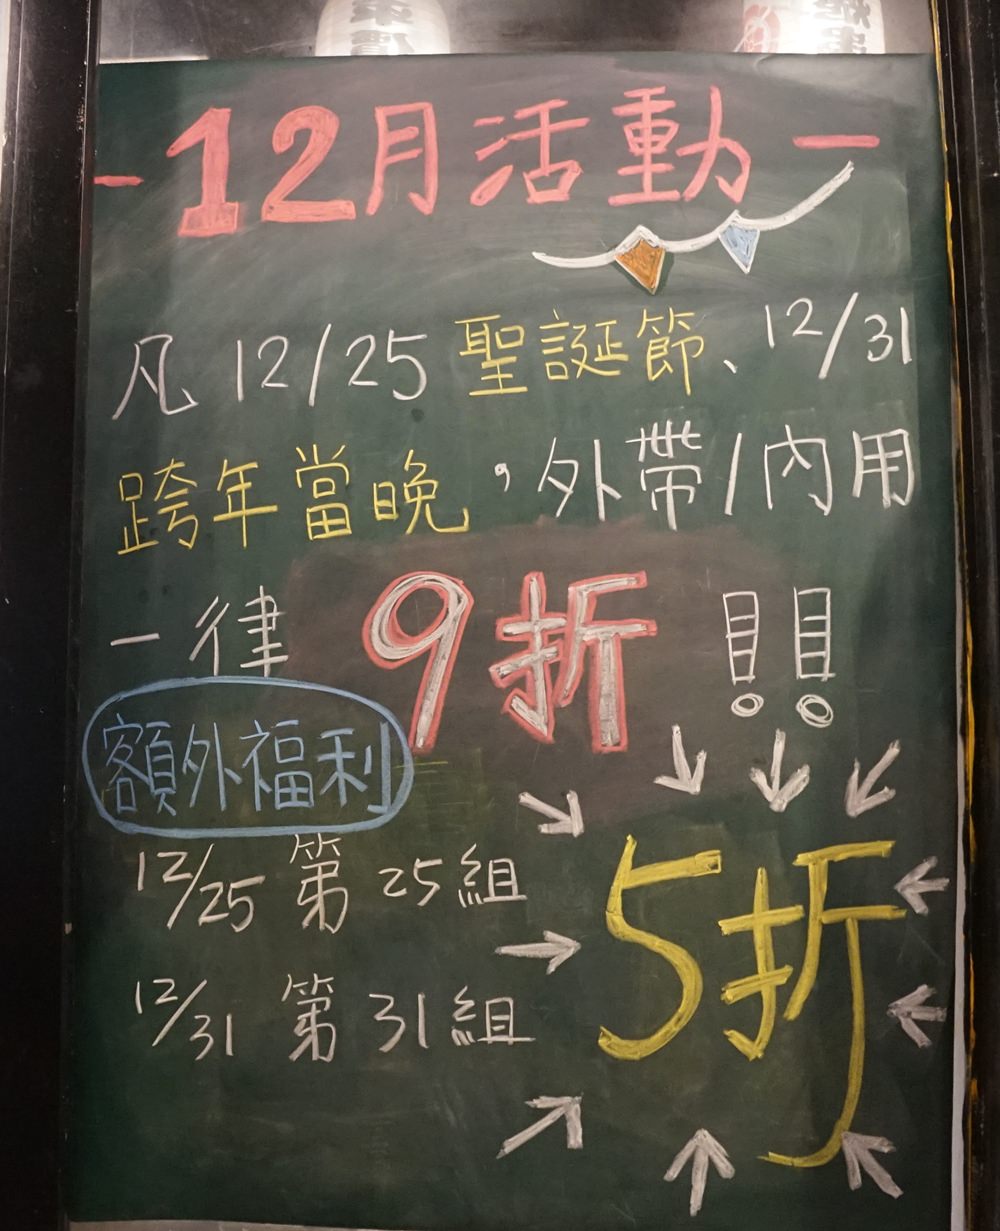 -12月活動-
凡 12/25 聖誕節、12/31
跨年當晚，外帶/內用
一律 9折 !!
額外福利
12/25 第 25 組
5折
12/31 第 31 組